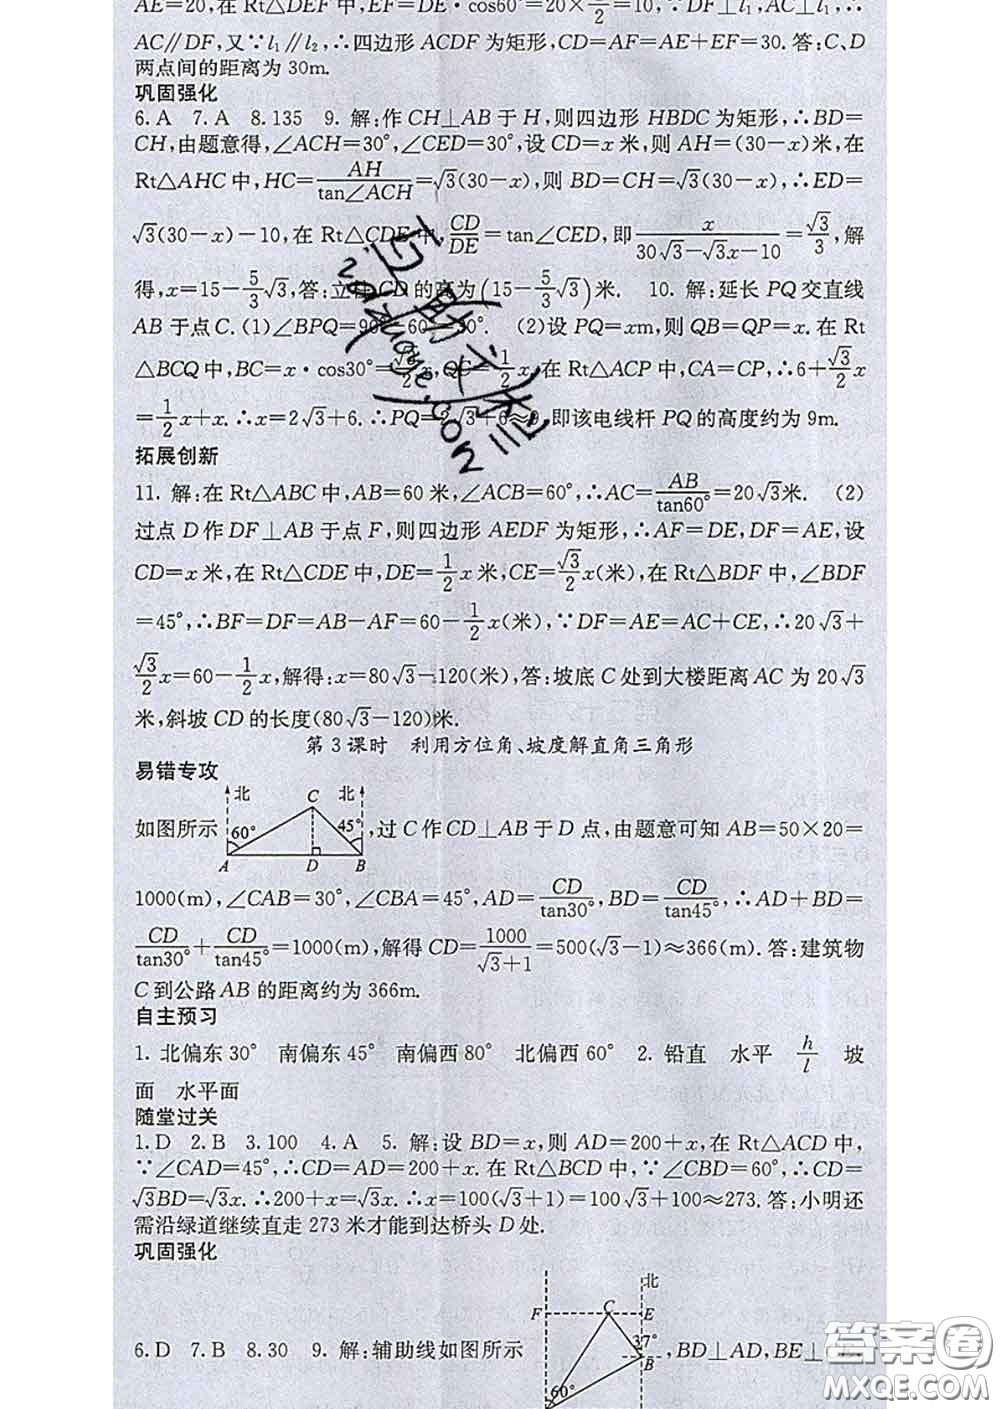 AE=20,在 Rt△DEF 中,EF=DE·cos60°=20×1/2=10,∵DF⊥l₁,AC⊥l₁,∴
AC∥DF,又∵l₁∥l₂,∴四边形 ACDF 为矩形,CD=AF=AE+EF=30.答:C、D
两点间的距离为 30m.
巩固强化
6.A 7.A 8.135 9. 解:作 CH⊥AB 于 H,则四边形 HBDC 为矩形,∴BD=
CH,由题意得,∠ACH=30°,∠CED=30°,设 CD=x 米,则 AH=(30-x)米,在
Rt△AHC 中,HC=AH/tan∠ACH=√3(30-x),则 BD=CH=√3(30-x),∴ED=
√3(30-x)-10,在 Rt△CDE 中,CD/DE=tan∠CED,即x/(30√3-√3x-10)=√3/3,解
得,x=15-5/3√3,答:立柱 CD 的高为(15-5/3√3)米. 10. 解:延长 PQ 交直线
AB 于点C.(1)∠BPQ=90°-60°=30°. (2)设 PQ=xm,则 QB=QP=x.在 Rt
△BCQ 中,BC=x·cos30°=√3/2x,QC=1/2x,在 Rt△ACP 中,CA=CP,∴6+√3/2x
=1/2x+x.∴x=2√3+6.∴PQ=2√3+6≈9,即该电线杆 PQ 的高度约为 9m.
拓展创新
11. 解:在 Rt△ABC 中,AB=60 米,∠ACB=60°,∴AC=AB/tan60°=20√3米. (2)
过点 D 作 DF⊥AB 于点 F,则四边形 AEDF 为矩形,∴AF=DE,DF=AE,设
CD=x 米,在 Rt△CDE 中,DE=1/2x 米,CE=√3/2x(米),在 Rt△BDF 中,∠BDF
=45°,∴BF=DF=AB-AF=60-1/2x(米),∵DF=AE=AC+CE,∴20√3+
√3/2x=60-1/2x,解得:x=80√3-120(米),答:坡底 C 处到大楼距离 AC 为 20√3
米,斜坡 CD 的长度(80√3-120)米.
第 3 课时 利用方位角、坡度解直角三角形
易错专攻
北 C 北
如图所示 60° 45° ,过 C 作 CD⊥AB 于 D 点,由题意可知 AB=50×20=
A D B
1000(m),∠CAB=30°,∠CBA=45°,AD=CD/tan30°,BD=CD/tan45°,∴AD+BD=
CD/tan30°+CD/tan45°=1000(m),解得 CD=1000/(√3+1)=500(√3-1)≈366(m).答:建筑物
C 到公路 AB 的距离约为 366m.
自主预习
1. 北偏东 30° 南偏东 45° 南偏西 80° 北偏西 60° 2. 铅直 水平 h/l 坡
面 水平面
随堂过关
1.D 2.B 3.100 4.A 5. 解:设 BD=x,则 AD=200+x,在 Rt△ACD 中,
∵∠CAD=45°,∴CD=AD=200+x.在 Rt△BCD 中,∵∠CBD=60°,∴CD=
√3BD=√3x.∴200+x=√3x.∴x=100(√3+1)=100√3+100≈273.答:小明还
需沿绿道继续直走 273 米才能到达桥头 D 处.
巩固强化
北
F C E
6.D 7.B 8.30 9. 解:辅助线如图所示 37° B ,BD⊥AD,BE⊥
60°
答案圈
MXQE.COM